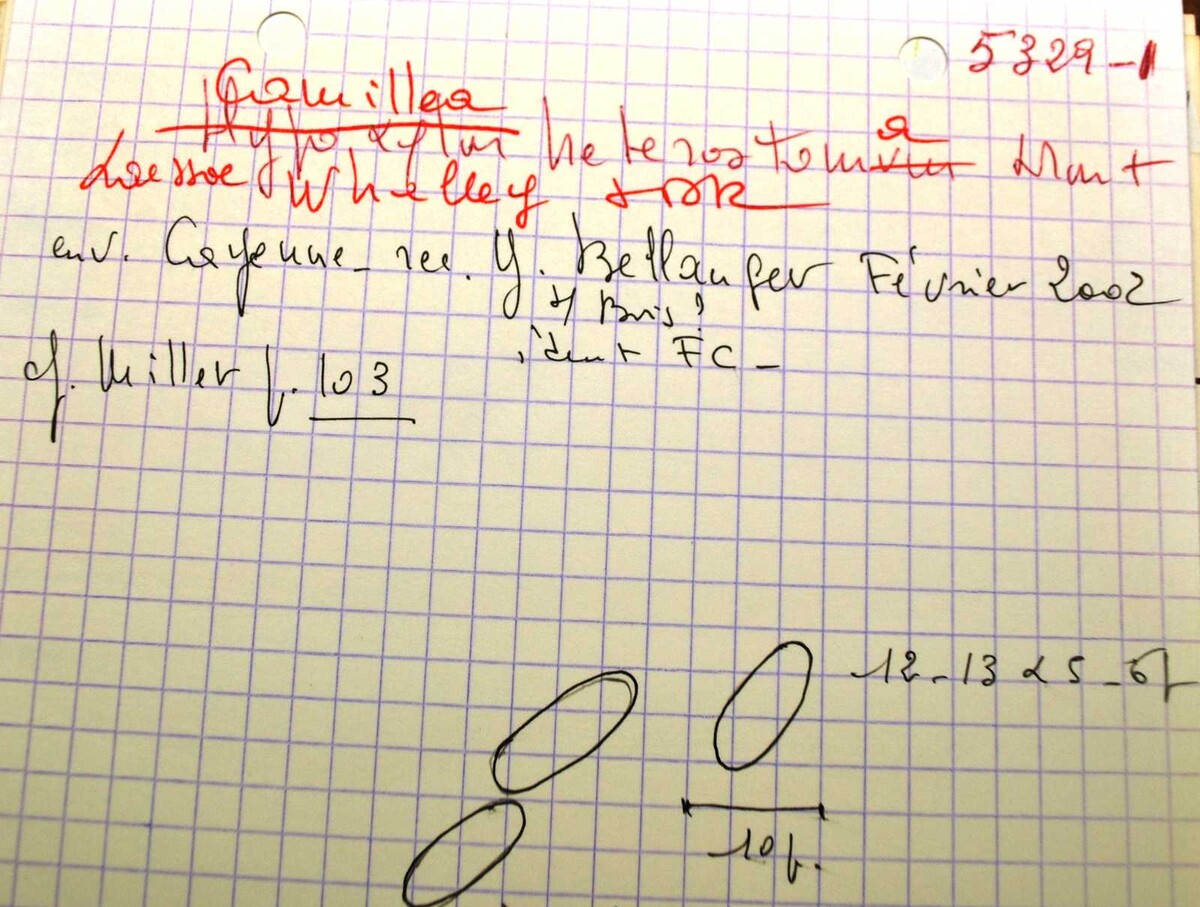 5329-1
Camillea
Hypoxylon heterostomum a Mont
Laessoe, Whalley
env. Cayenne - rec. Y. Bellanger Février 2002
s/ bois
ident FC -
cf. Miller p. 103
12-13 x 5-6µ
10µ.